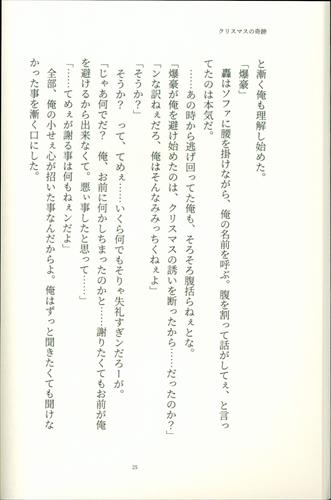 クリスマスの奇跡
と漸く俺も理解し始めた。
「爆豪」
轟はソファに腰を掛けながら、俺の名前を呼ぶ。腹を割って話がしてぇ、と言っ
てたのは本気だ。
……あの時から逃げ回ってた俺も、そろそろ腹括らねぇとな。
「爆豪が俺を避け始めたのは、クリスマスの誘いを断ったから……だったのか?」
「ンな訳ねぇだろ、俺はそんなみみっちくねぇよ」
「そうか?」
そうか? って、てめぇ……いくら何でもそりゃ失礼すぎンだろーが。
「じゃあ何でだ? 俺、お前に何かしちまったのかと……謝りたくてもお前が俺
を避けるから出来なくて。悪ぃ事したと思って……」
「……てめぇが謝る事は何もねぇンだよ」
全部、俺の小せぇ心が招いた事なんだからよ。俺はずっと聞きたくても聞けな
かった事を漸く口にした。
25